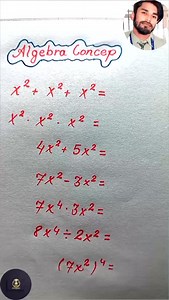 Algebra Concep
x² + x² + x² =
x² · x² · x² =
4x² + 5x² =
7x² - 3x² =
7x⁴ · 3x² =
8x⁴ ÷ 2x² =
(7x²)⁴ =